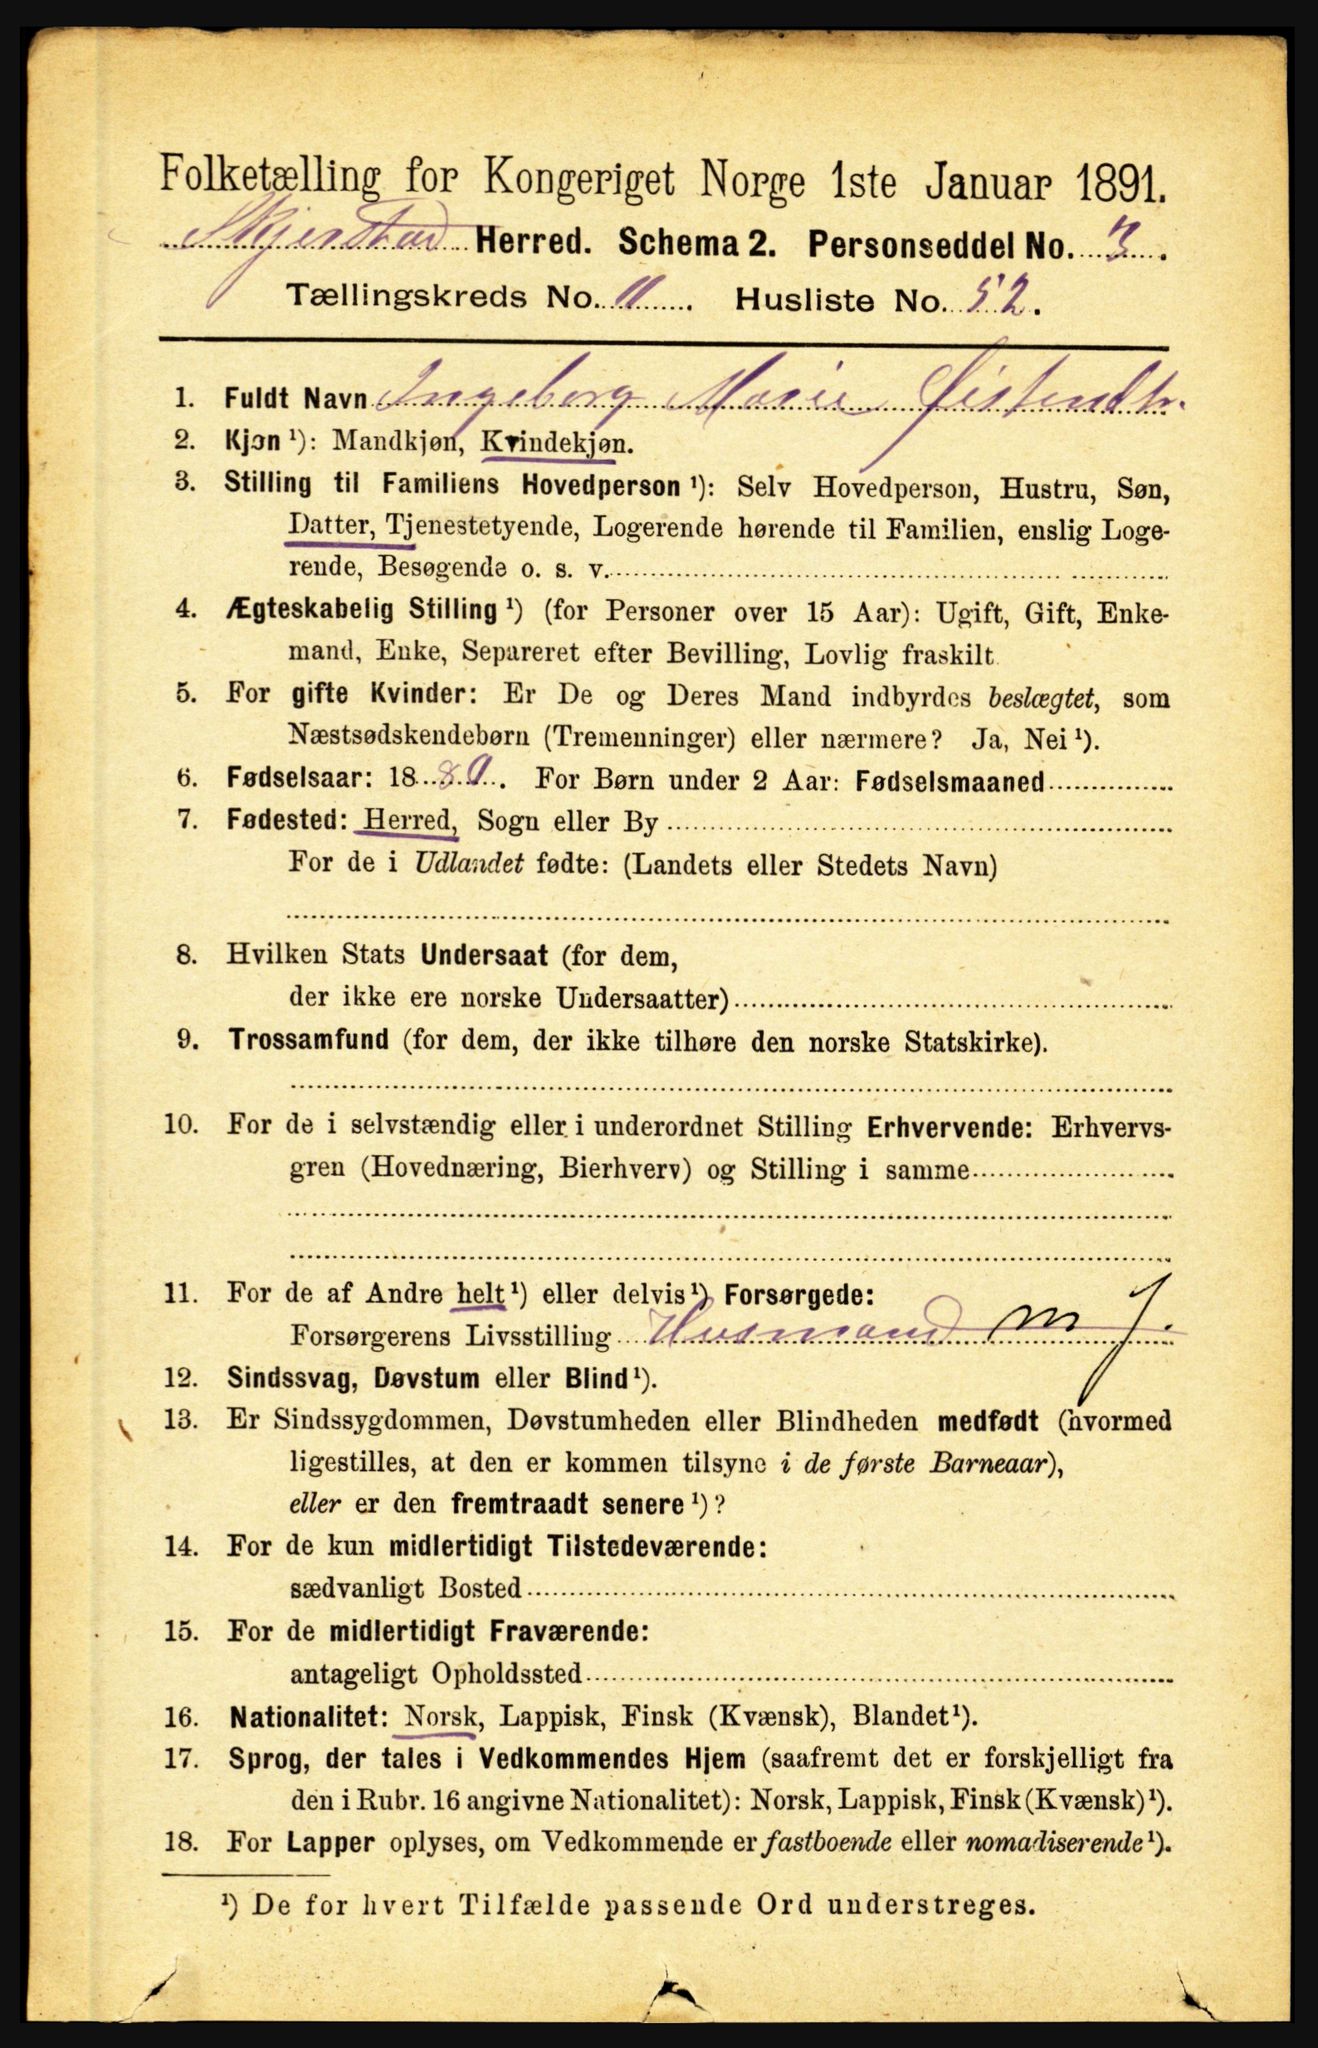 Folketælling for Kongeriget Norge 1ste Januar 1891.
Skjerstad Herred. Schema 2. Personseddel No. 3.
Tællingskreds No. 11. Husliste No. 52.
1. Fuldt Navn Ingeborg Marie Øistendtr.
2. Kjøn ¹): Mandkjøn, Kvindekjøn.
3. Stilling til Familiens Hovedperson ¹): Selv Hovedperson, Hustru, Søn,
Datter, Tjenestetyende, Logerende hørende til Familien, enslig Loge-
rende, Besøgende o. s. v.
4. Ægteskabelig Stilling ¹) (for Personer over 15 Aar): Ugift, Gift, Enke-
mand, Enke, Separeret efter Bevilling, Lovlig fraskilt
5. For gifte Kvinder: Er De og Deres Mand indbyrdes beslægtet, som
Næstsødskendebørn (Tremenninger) eller nærmere? Ja, Nei ¹).
6. Fødselsaar: 18 . For Børn under 2 Aar: Fødselsmaaned
7. Fødested: Herred, Sogn eller By
For de i Udlandet fødte: (Landets eller Stedets Navn)
8. Hvilken Stats Undersaat (for dem,
der ikke ere norske Undersaatter)
9. Trossamfund (for dem, der ikke tilhøre den norske Statskirke).
10. For de i selvstændig eller i underordnet Stilling Erhvervende: Erhvervs-
gren (Hovednæring, Bierhverv) og Stilling i samme
11. For de af Andre helt ¹) eller delvis ¹) Forsørgede:
Forsørgerens Livsstilling Husmand m J.
12. Sindssvag, Døvstum eller Blind ¹).
13. Er Sindssygdommen, Døvstumheden eller Blindheden medfødt (hvormed
ligestilles, at den er kommen tilsyne i de første Barneaar),
eller er den fremtraadt senere ¹)?
14. For de kun midlertidigt Tilstedeværende:
sædvanligt Bosted
15. For de midlertidigt Fraværende:
antageligt Opholdssted
16. Nationalitet: Norsk, Lappisk, Finsk (Kvænsk), Blandet ¹).
17. Sprog, der tales i Vedkommendes Hjem (saafremt det er forskjelligt fra
den i Rubr. 16 angivne Nationalitet): Norsk, Lappisk, Finsk (Kvænsk) ¹).
18. For Lapper oplyses, om Vedkommende er fastboende eller nomadiserende ¹).
¹) De for hvert Tilfælde passende Ord understreges.